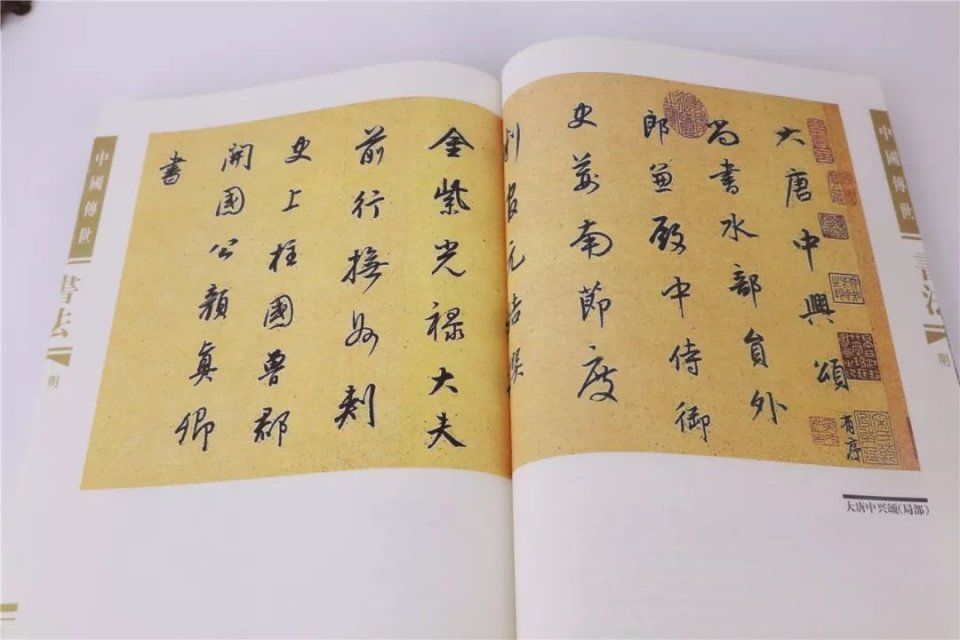 大唐中興頌
有序
尚書水部員外
郎兼殿中侍御
史荊南節度
判官元結撰
金紫光祿大夫
前行撫州刺
史上柱國魯郡
開國公顏真卿
書
大唐中兴颂(局部)
中國傳世
書法
明
中國傳世
書法
明